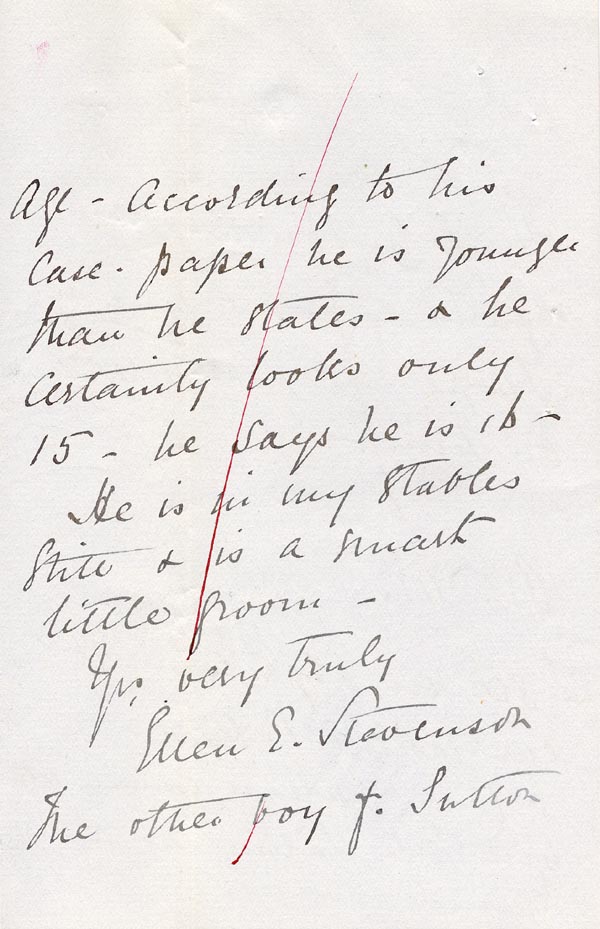 Age - According to his
Case-paper he is younger
than he states - & he
Certainly looks only
15 - he says he is 16 -
He is in my stables
still & is a smart
little groom -
Yrs. very truly
Ellen E. Stevenson
The other boy J. Sutton